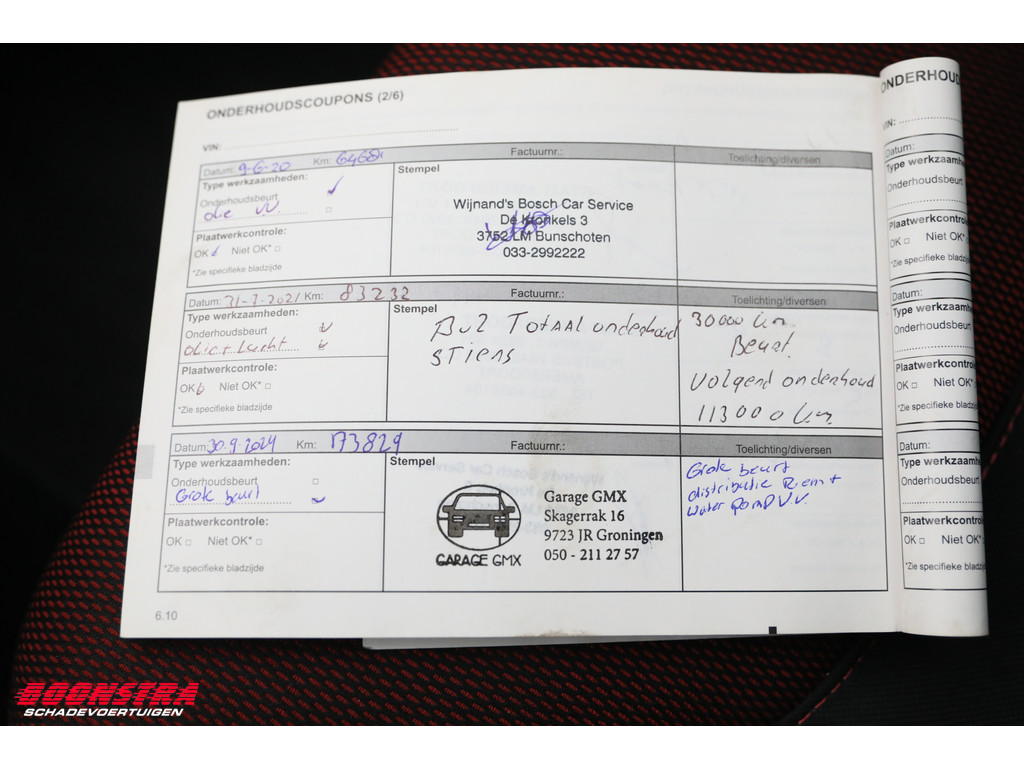 ONDERHOUDSCOUPONS (2/6)
VIN:
Datum: 9-6-20 Km: 64681 Factuurnr.: Toelichting/diversen
Type werkzaamheden:
Onderhoudsbeurt
olie v.v.
Plaatwerkcontrole:
OK Niet OK*
*Zie specifieke bladzijde
Stempel
Wijnand's Bosch Car Service
De Kronkels 3
3752 LM Bunschoten
033-2992222
Datum: 31-7-2021 Km: 83232 Factuurnr.: Toelichting/diversen
Type werkzaamheden:
Onderhoudsbeurt
olie + lucht
Plaatwerkcontrole:
OK Niet OK*
*Zie specifieke bladzijde
Stempel
Totaal onderhoud
STIENS
30000 km
Beurt.
Volgend onderhoud
113000 km
Datum: 30.9.2024 Km: 173829 Factuurnr.: Toelichting/diversen
Type werkzaamheden:
Onderhoudsbeurt
Grote beurt
Plaatwerkcontrole:
OK Niet OK*
*Zie specifieke bladzijde
Stempel
GARAGE GMX
Garage GMX
Skagerrak 16
9723 JR Groningen
050 - 211 27 57
Grote beurt
distributie Riem +
water pomp V.V.
6.10
ONDERHOUD
VIN:
Datum:
Type werkzaamh
Onderhoudsbeurt
Plaatwerkcontrol
OK Niet OK*
*Zie specifieke bladz
Datum:
Type werkzaamh
Onderhoudsbeur
Plaatwerkcontrol
OK Niet OK*
*Zie specifieke bladz
Datum:
Type werkzaam
Onderhoudsbeurt
Plaatwerkcontrol
OK Niet OK*
*Zie specifieke bladzij
BOONSTRA
SCHADEVOERTUIGEN